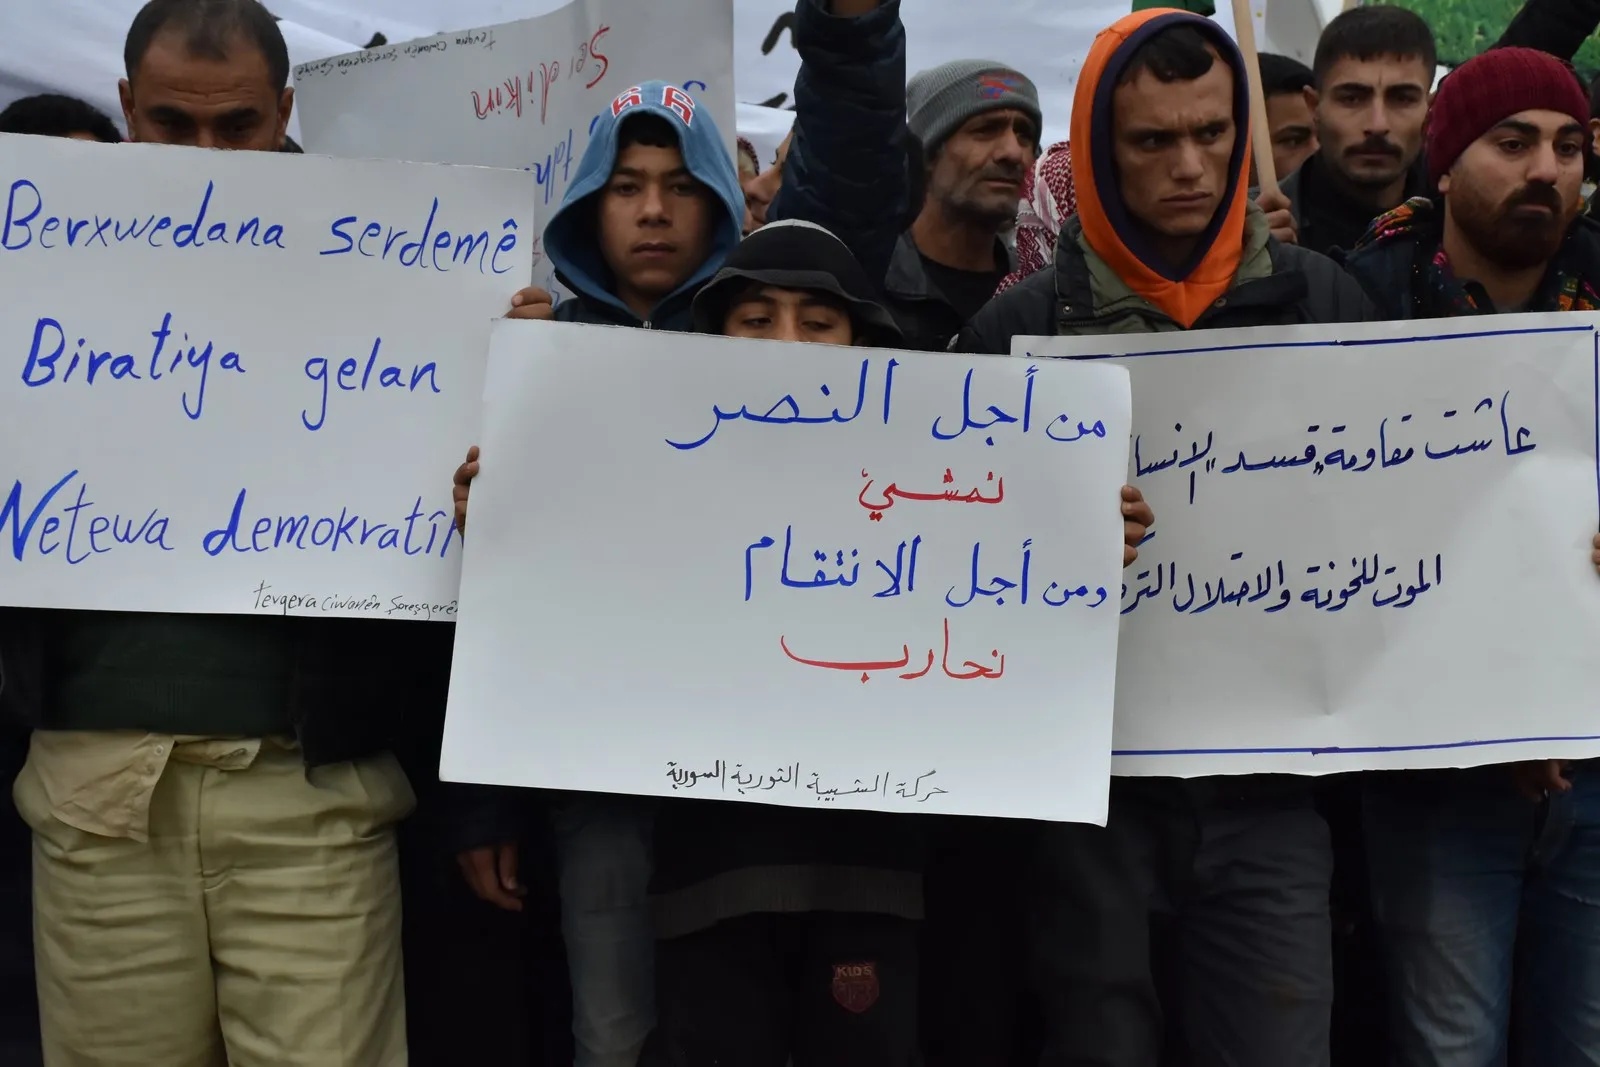 Berxwedana serdemê
Biratiya gelan
Netewa demokratîk
tevgera ciwanên Şoreşgerên
tevgera ciwanên Şoreşgerên Sûriyê
66
من أجل النصر
نمشي
ومن أجل الانتقام
نحارب
حركة الشبيبة الثورية السورية
عاشت مقاومة "قسد" الإنسا
الموت للخونة والاحتلال الترك
KIDS